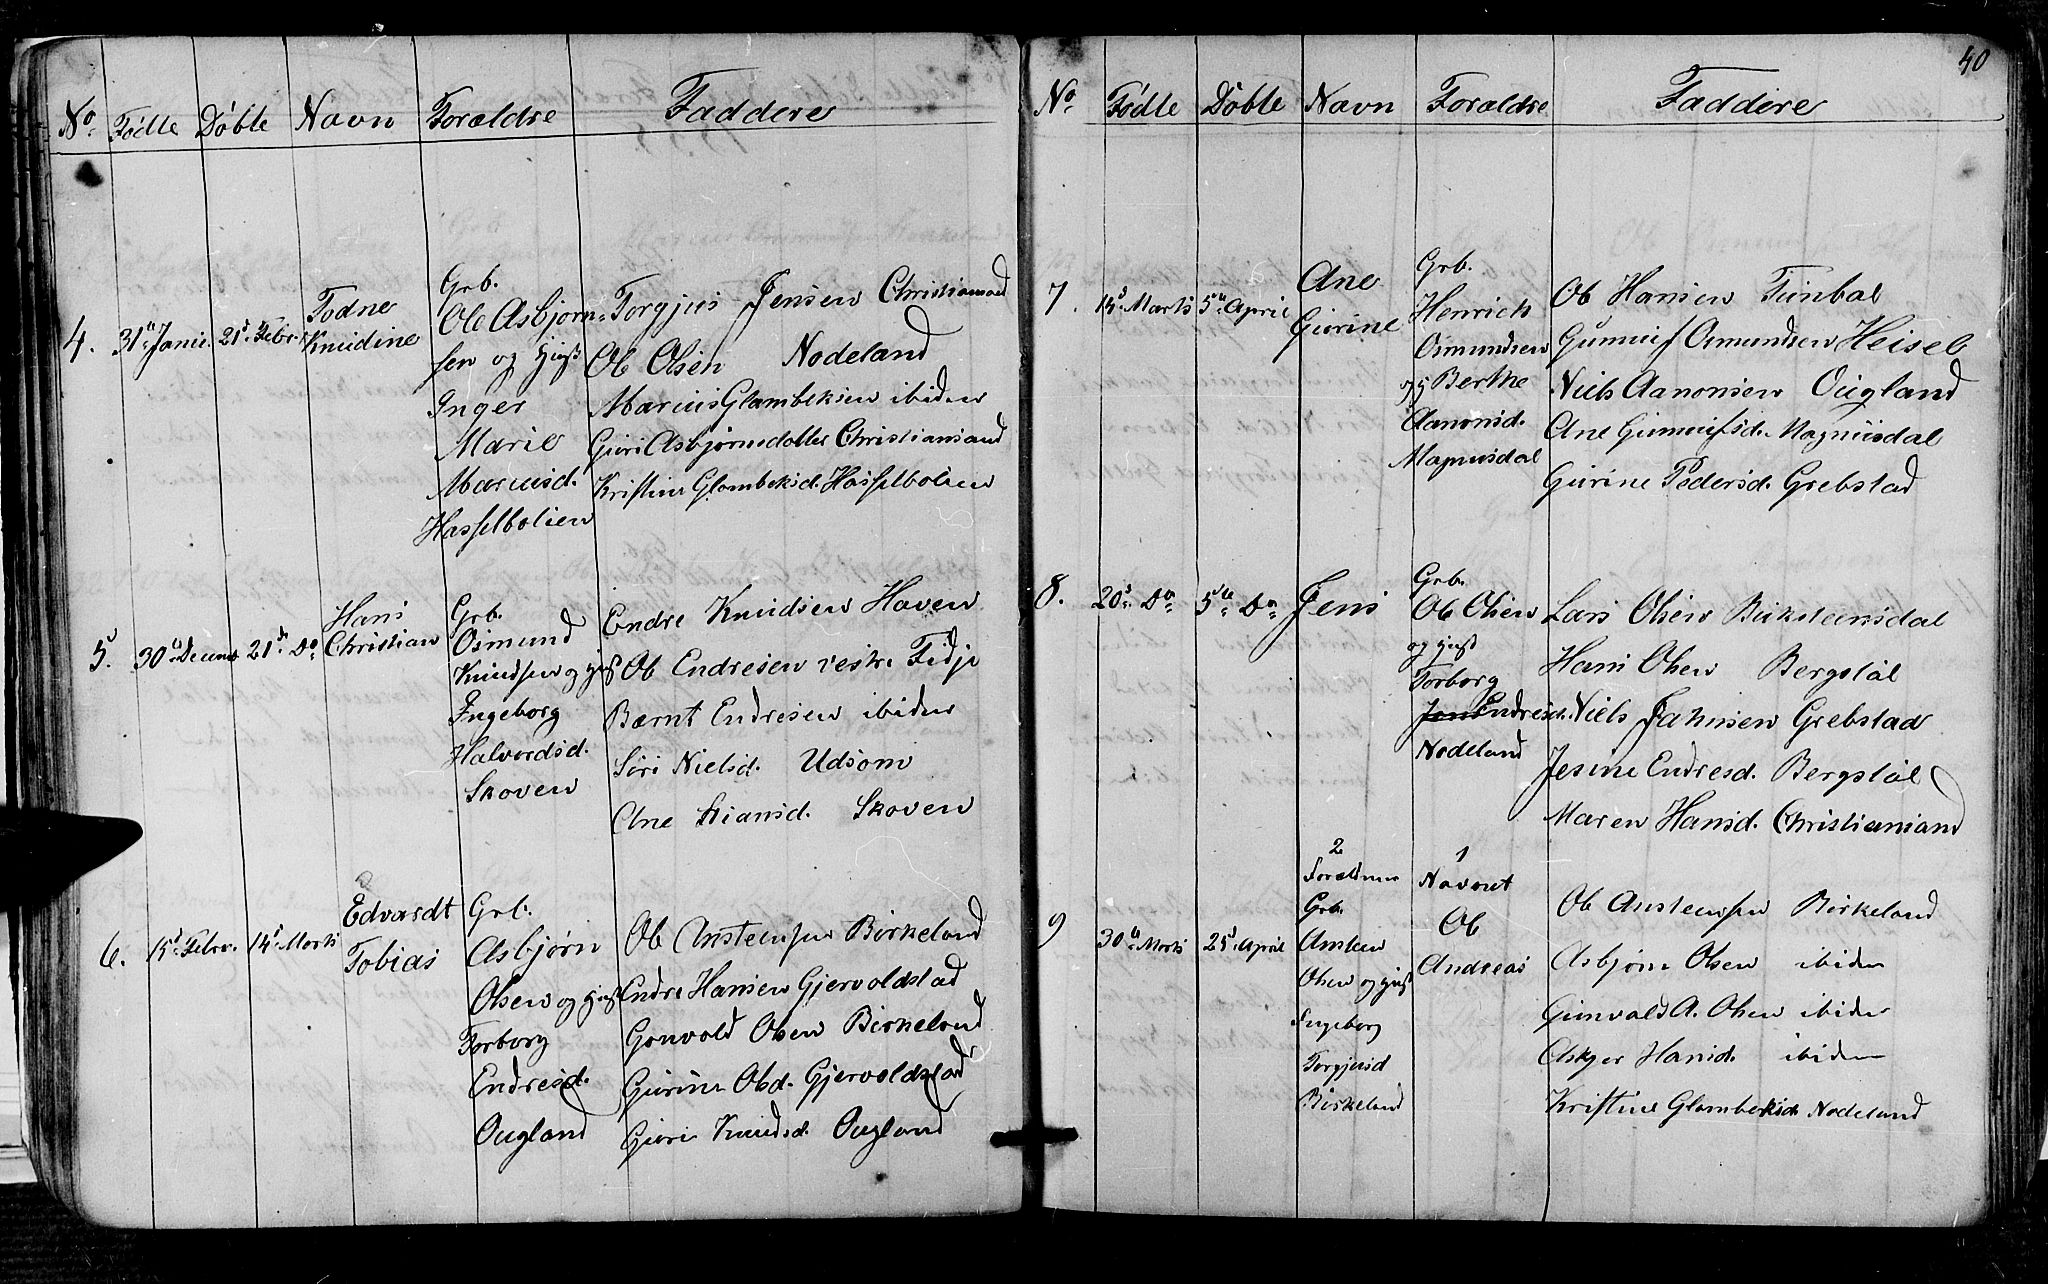 No. Födte Döbte Navn Forældre Faddere
4. 31te Janu. 21de Febr. Todne Knudine
Grb.
Ole Asbjörn-
sen og Hust
Inger
Marie
Mariusd.
Hasselbolien
Torgjus Jensen Christiansand
Ole Olsen Nodeland
Marius Glambeksen ibiden
Guri Asbjörnsdatter Christiansand
Kristine Glambeksd. Hasselbolien
5. 30te Decembr 21de Do Hans Christian
Grb.
Osmund
Knudsen og Hust
Ingeborg
Halvordsd.
Skoven
Endre Knudsen Haven
Ole Endresen vestre Fidje
Bærnt Endresen ibiden
Siri Nielsd. Udsom
Ane Stiansd. Skoven
6. 15de Febr. 14de Marts Edvardt Tobias
Grb.
Asbjørn
Olsen og Hust
Torborg
Endresd.
Ougland
Ole Anstensen Birkeland
Endre Hansen Gjervoldstad
Gonvold Olsen Birkeland
Gurine Olsd. Gjervoldstad
Guri Knudsd. Ougland
40
No. Födte Döbte Navn Forældre Faddere
7. 14de Marts 5te April Ane Gurine
Grb.
Henrich
Osmundsen
og Berthe
Aanonsd.
Magnusdal
Ole Hansen Tunbal
Gunnuf Osmundsen Heisel
Niels Aanonsen Ougland
Ane Gunnufsd. Magnusdal
Gurine Pedersd. Grebstad
8. 20de Do 5te Do Jens
Grb.
Ole Olsen
og Hust
Torborg
Endresd.
Nodeland
Lars Olsen Birkstensdal
Hans Olsen Bergstøl
Niels Jahnsen Grebstad
Jesine Endresd. Bergstøl
Maren Hansd. Christiansand
9 30te Marts 25de April
2
Forældrene
Grb.
Ansten
Olsen og Hust
Ingeborg
Torgjusd
Birkeland
1
Navnet
Ole
Andreas
Ole Anstensen Birkeland
Asbjørn Olsen ibiden
Gunvald A. Olsen ibiden
Asger Hansd. ibiden
Kristine Glambeksd. Nodeland